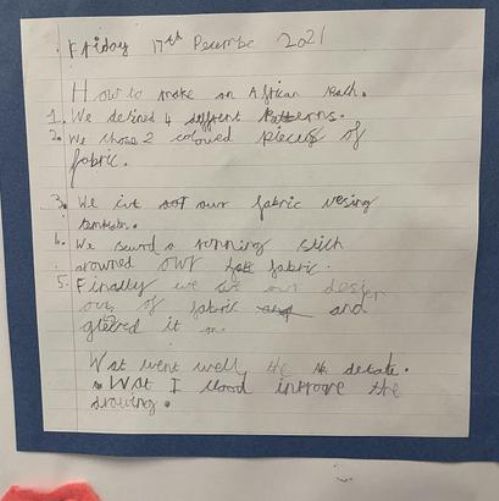 Friday 17th Decembe 2021
How to make an African Sash.
1. We desined 4 diffrent Patterns.
2. We chose 2 coloured pieces of
fabric.
3. We cut our fabric useing
4. We sewd a running stich
arowned our fabric.
5. Finally we cut our design
out of fabric and
glewed it on.
Wat went well, the detale.
Wat I cood improve the
drawing.